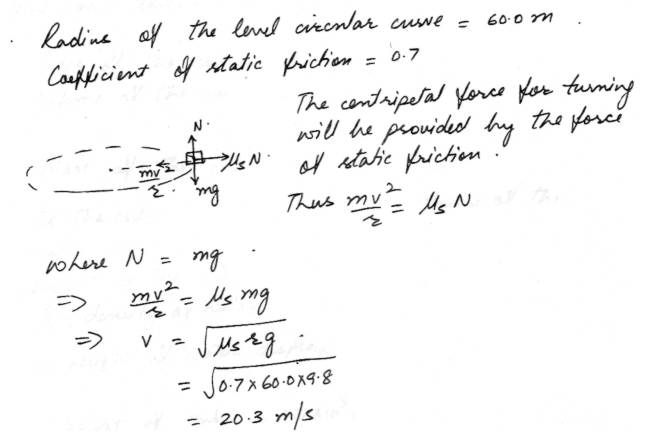 Radius of the level circular curve = 60.0 m .
Coefficient of static friction = 0.7
The centripetal force for turning
will be provided by the force
of static friction .
N
mv²/r
μₛN
mg
Thus mv²/r = μₛ N
where N = mg .
=> mv²/r = μₛ mg
=> v = √μₛ r g .
= √0.7 × 60.0 × 9.8
= 20.3 m/s